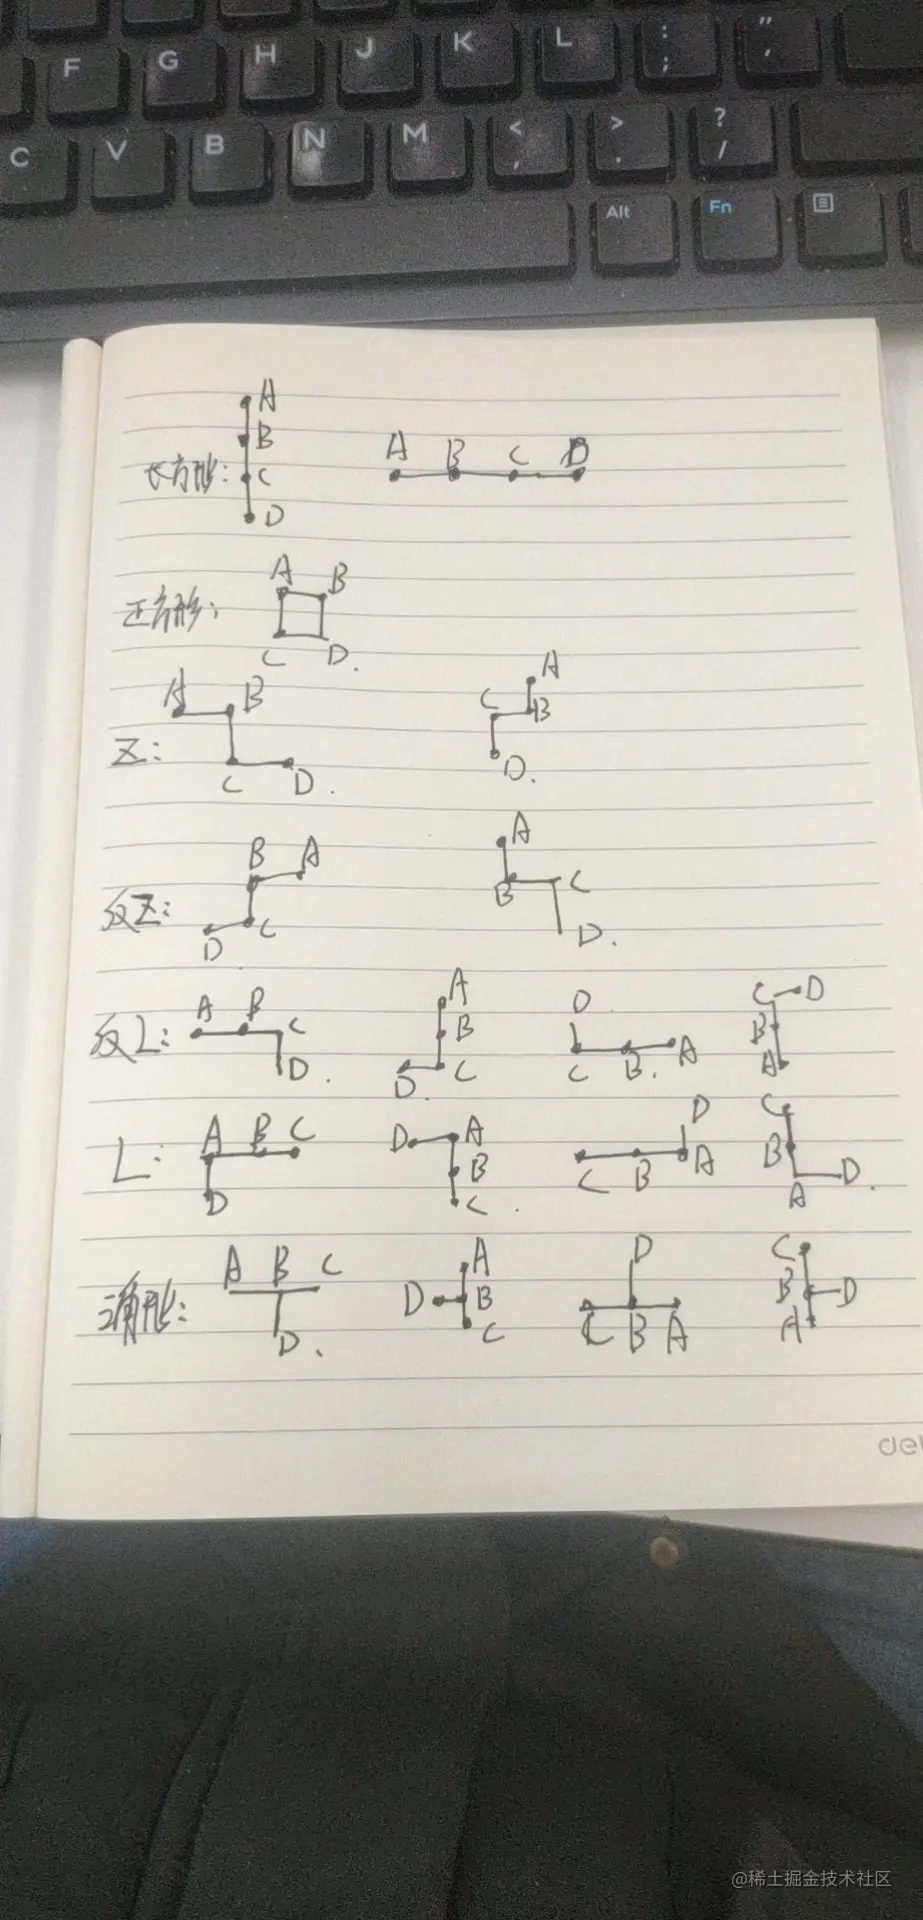 F G H J K L : ; " '
C V B N M < , > . ? /
Alt Fn
A
B
长方形: C
D
A B C D
正方形:
A B
C D.
Z:
A B
C D.
A
C B
D.
反Z:
B A
D C
A
B C
D.
反L:
A B C
D.
A
B
D. C
D
C B. A
C D
B
A
L:
A B C
D
D A
B
C.
D
C B A
C
B
A D.
三角形:
A B C
D.
A
D B
C
D
C B A
C
B D
A
del
@稀土掘金技术社区